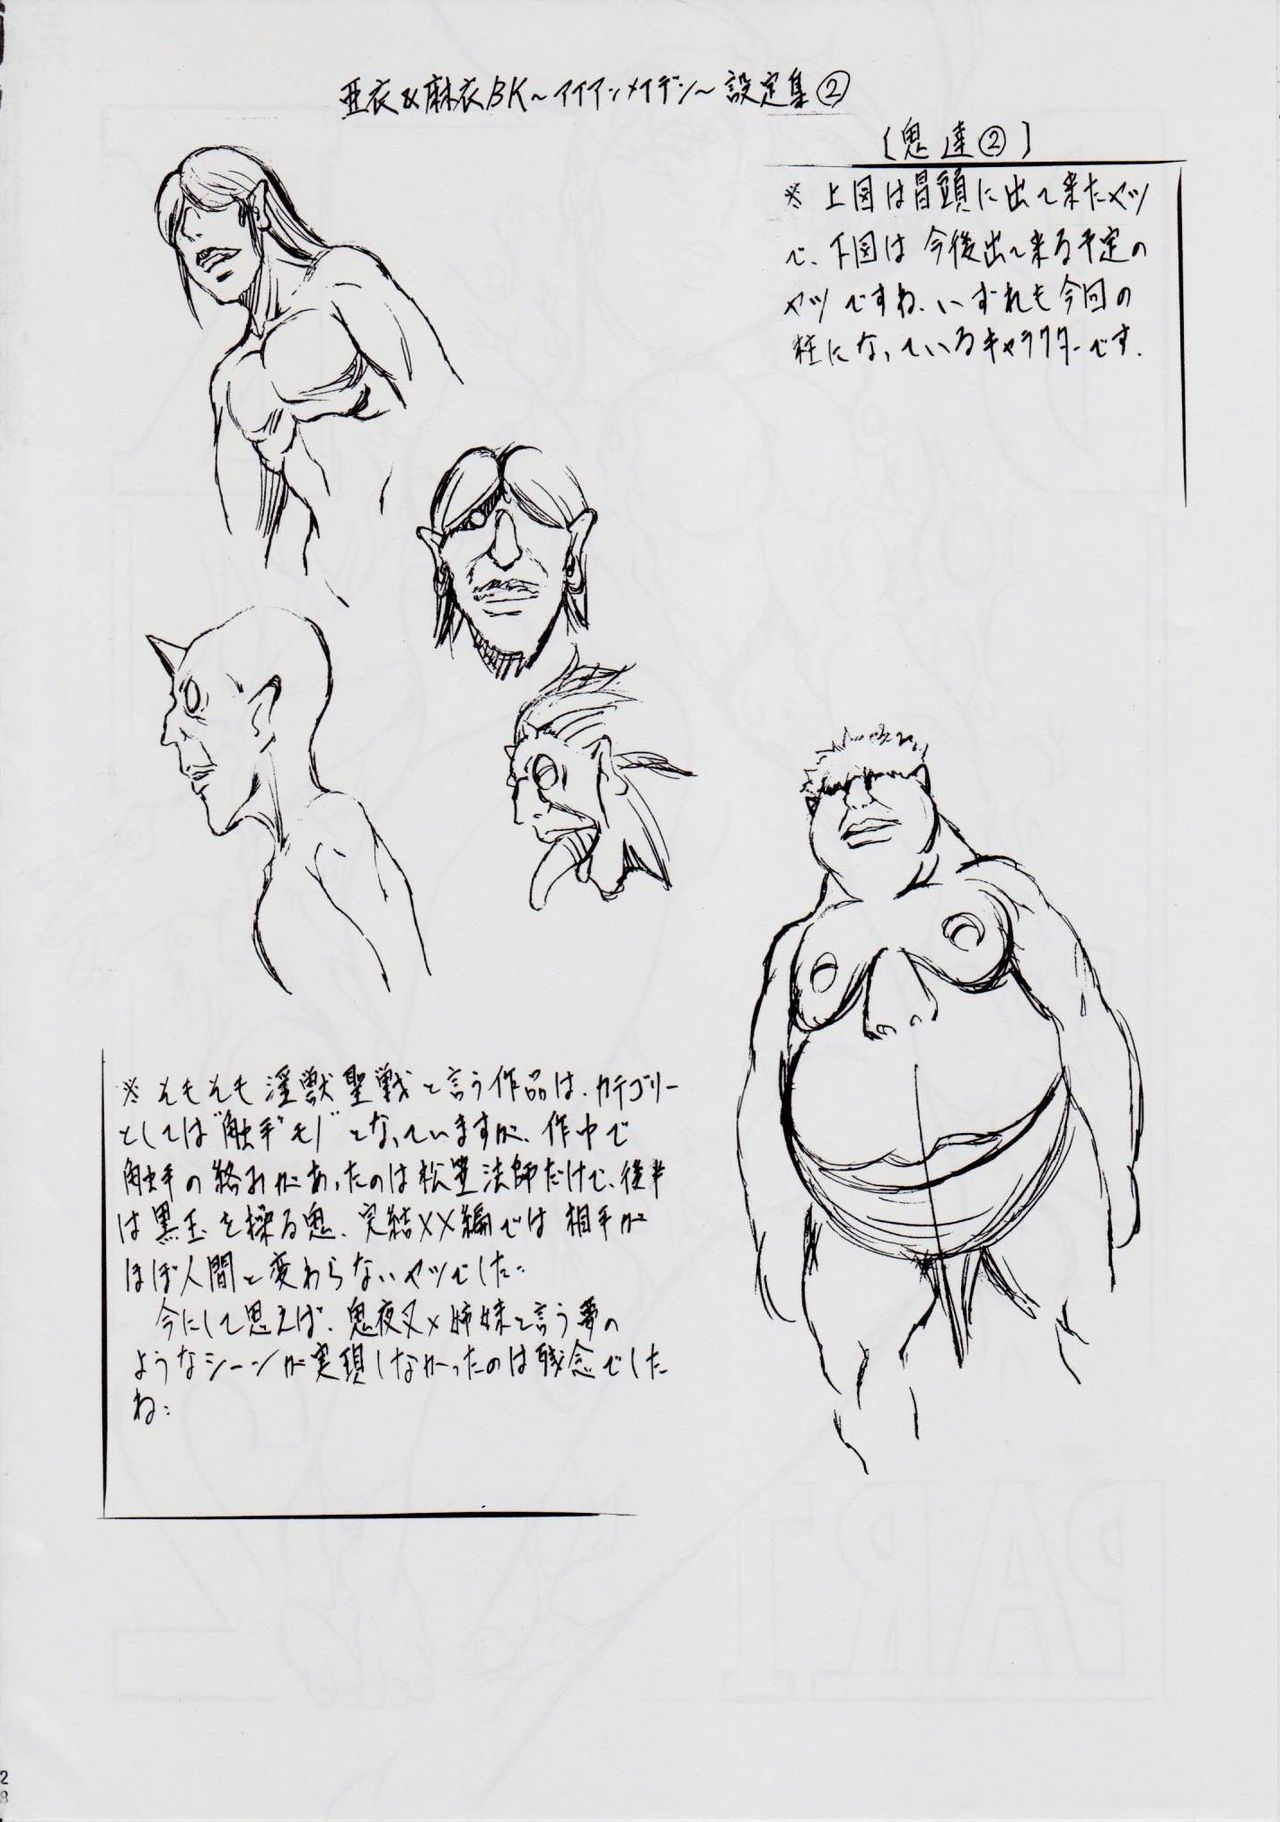 亜衣&麻衣BK～アイアンメイデン～設定集②
〔鬼達②〕
※上図は冒頭に出て来たヤツ
で、下図は今後出て来る予定の
ヤツですね、いずれも今回の
柱になっているキャラクターです.
※そもそも淫獣聖戦と言う作品は、カテゴリー
としては"触手"モノとなっていますが、作中で
触手の絡みがあったのは松笠法師だけで、後半
は黒玉を操る鬼、実結××編では相手が
ほぼ人間と変わらないヤツでした…
今にして思えば、鬼夜叉×姉妹と言う夢の
ようなシーンが実現しなかったのは残念でした
ね…
28
PART
2